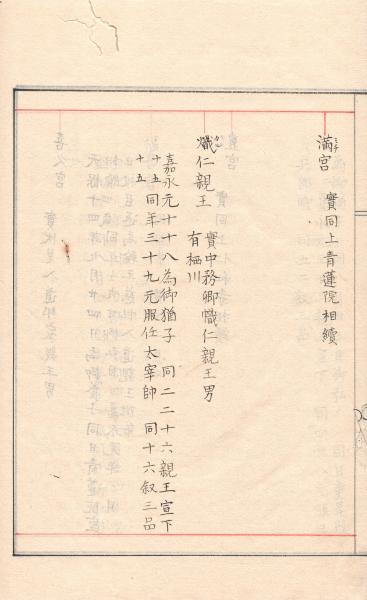 満宮 實同上青蓮院相續
熾仁親王 實中務卿幟仁親王男
有栖川
嘉永元十十八為御猶子 同二二十六親王宣下
十五
十五
同年三十九元服任太宰帥 同十六叙三品